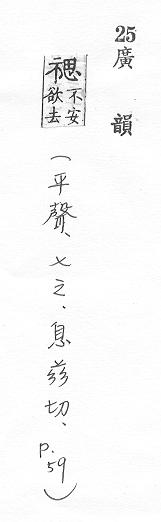 25 廣韻
禗 不安欲去
(平聲、七之、息茲切、P.59)